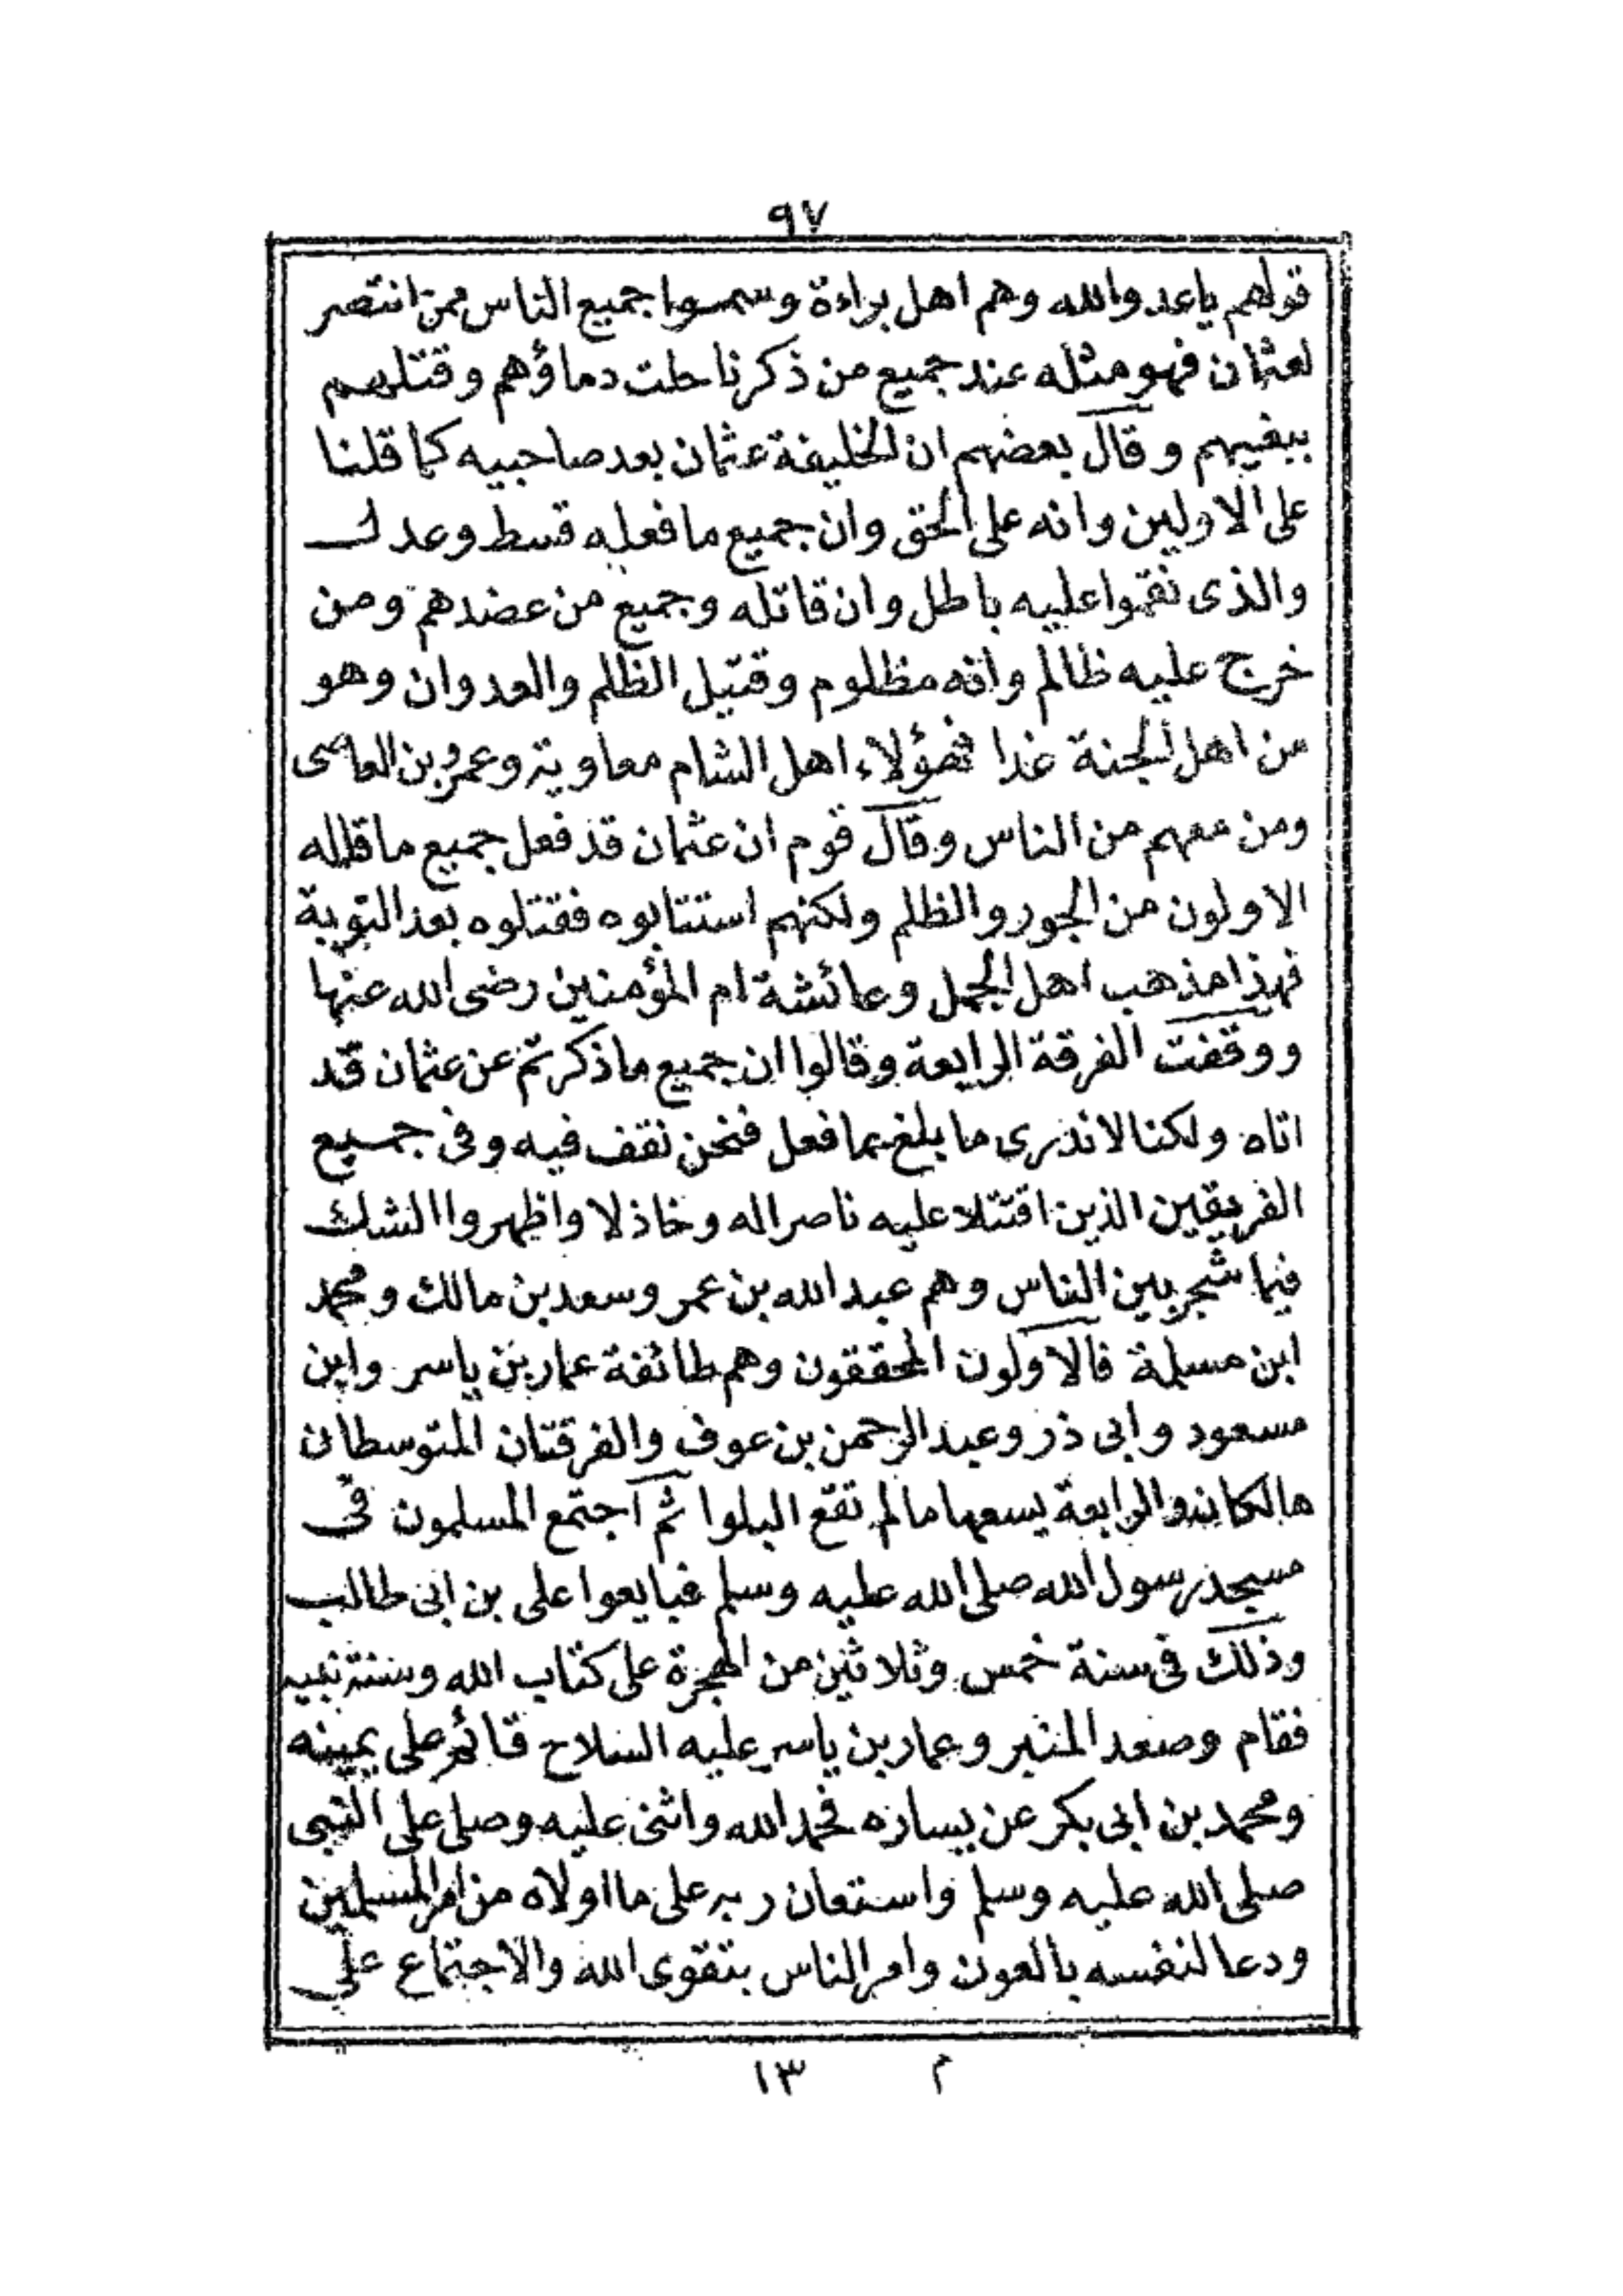 ٩٧
قولهم ياعدوالله وهم اهل براءة وسموا جميع الناس ممن انتصر
لعثمان فهو مثله عند جميع من ذكرنا حلت دماؤهم وقتلهم
ببغيهم وقال بعضهم ان الخليفة عثمان بعد صاحبيه كما قلنا
على الاولين وانه على الحق وان جميع ما فعله قسط وعدل
والذى نقموا عليه باطل وان قاتله وجميع من عضدهم ومن
خرج عليه ظالم وانه مظلوم وقتيل الظلم والعدوان وهو
من اهل الجنة غدا فهؤلاء اهل الشام معاوية وعمرو بن العاصى
ومن معهم من الناس وقال قوم ان عثمان قد فعل جميع ما قاله
الاولون من الجور والظلم ولكنهم استتابوه فقتلوه بعد التوبة
فهذا مذهب اهل الجمل وعائشة ام المؤمنين رضى الله عنها
ووقفت الفرقة الرابعة وقالوا ان جميع ما ذكرتم عن عثمان قد
اتاه ولكنا لا ندرى ما بلغ بما فعل فنحن نقف فيه وفى جميع
الفريقين الذين اقتتلا عليه ناصرا له وخاذلا واظهروا الشك
فيما شجر بين الناس وهم عبد الله بن عمر وسعد بن مالك ومحمد
ابن مسلمة فالاولون المحققون وهم طائفة عمار بن ياسر وابن
مسعود وابى ذر وعبد الرحمن بن عوف والفرقتان المتوسطان
هالكان والرابعة يسعها ما لم تقع البلوا ثم اجتمع المسلمون فى
مسجد رسول الله صلى الله عليه وسلم فبايعوا على بن ابى طالب
وذلك فى سنة خمس وثلاثين من الهجرة على كتاب الله وسنة نبيه
فقام وصعد المنبر وعمار بن ياسر عليه السلاح قائم على يمينه
ومحمد بن ابى بكر عن يساره فحمد الله واثنى عليه وصلى على النبى
صلى الله عليه وسلم واستعان ربه على ما اولاه من امر المسلمين
ودعا لنفسه بالعون وامر الناس بتقوى الله والاجتماع على
م ١٣